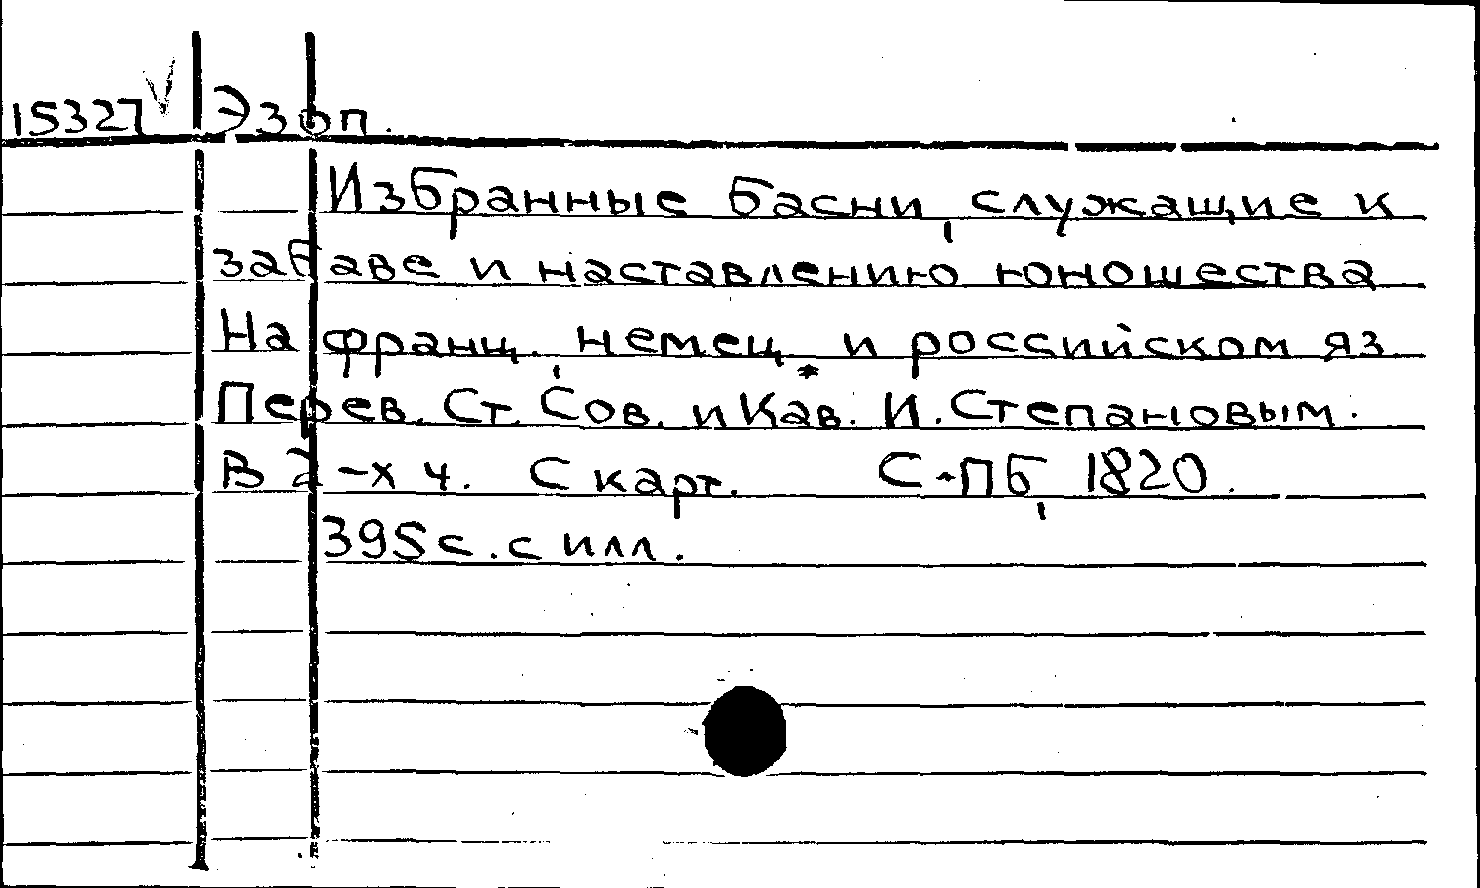 15327 V Эзоп.
Избранные басни, служащие к
забаве и наставлению юношества
На франц., немец. и российском яз.
Перев. Ст. Сов. и Кав. И. Степановым.
В 2-х ч. С карт. С-ПБ, 1820.
395 с. с илл.